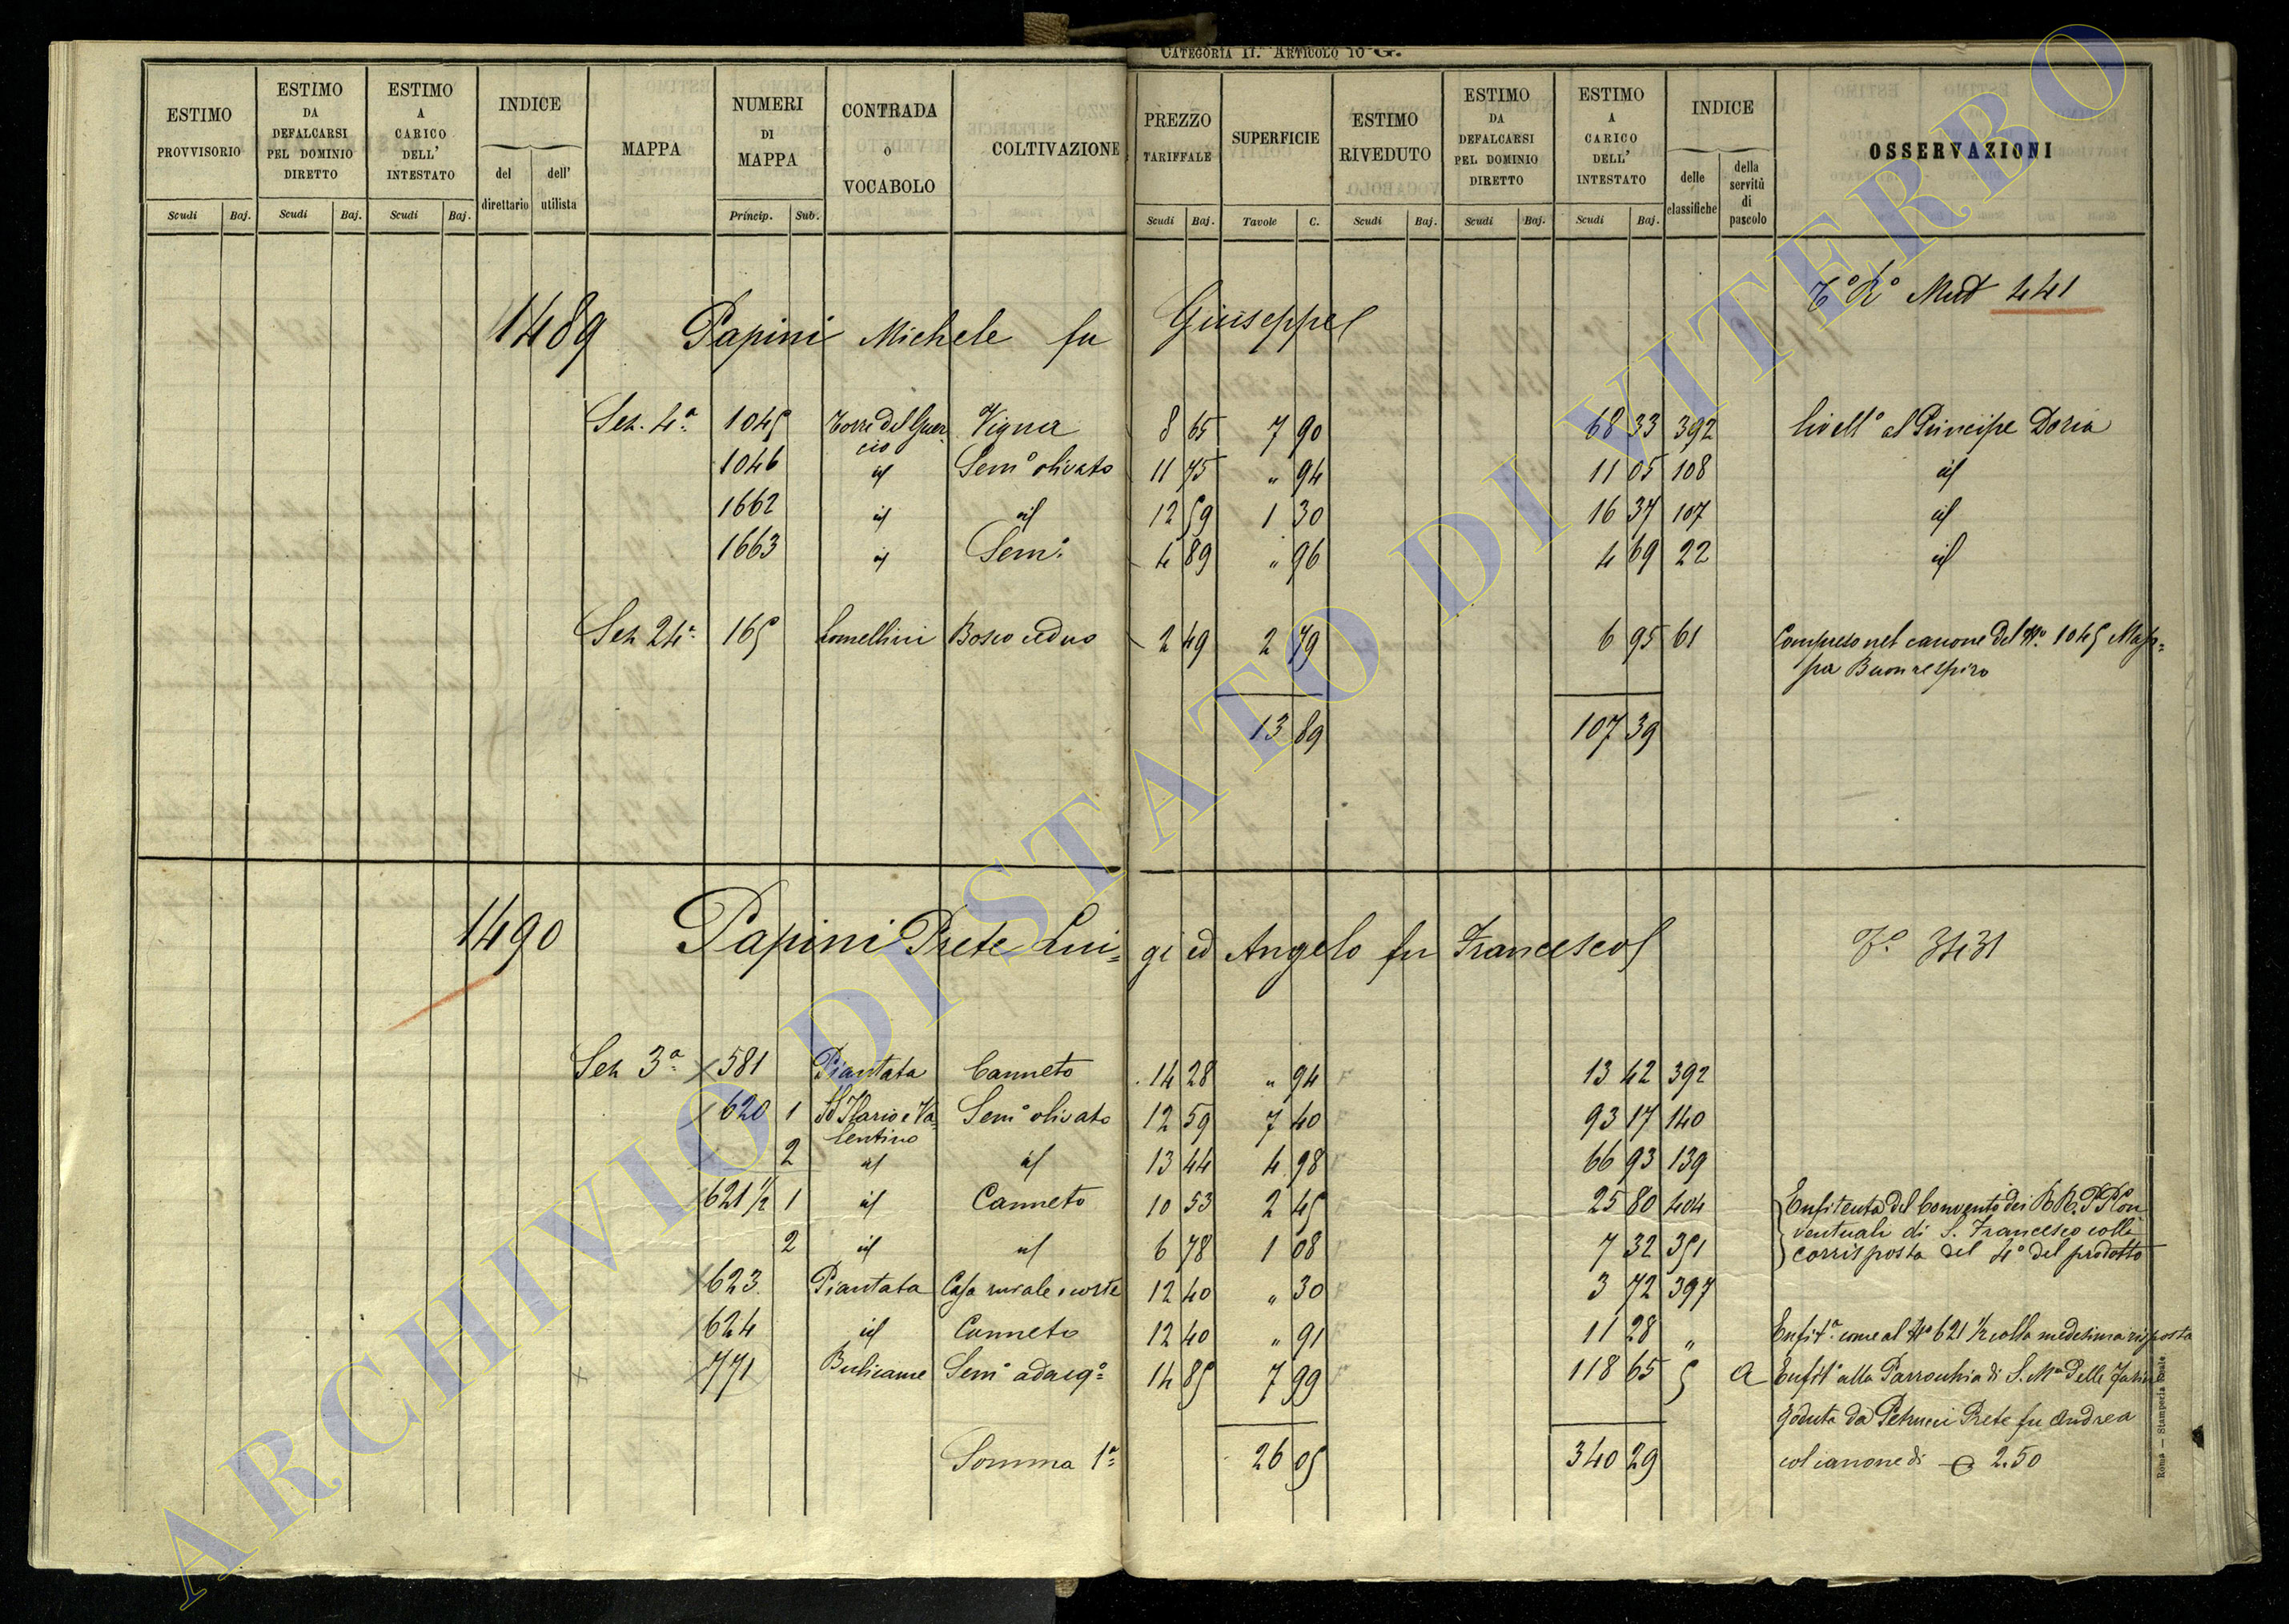 CATEGORIA II.ª ARTICOLO 10 G.
ESTIMO PROVVISORIO Scudi Baj.
ESTIMO DA DEFALCARSI PEL DOMINIO DIRETTO Scudi Baj.
ESTIMO A CARICO DELL' INTESTATO Scudi Baj.
INDICE del direttario dell' utilista
MAPPA
NUMERI DI MAPPA Princip. Sub.
CONTRADA o VOCABOLO
COLTIVAZIONE
PREZZO TARIFFALE Scudi Baj.
SUPERFICIE Tavole C.
ESTIMO RIVEDUTO Scudi Baj.
ESTIMO DA DEFALCARSI PEL DOMINIO DIRETTO Scudi Baj.
ESTIMO A CARICO DELL' INTESTATO Scudi Baj.
INDICE delle classifiche della servitù di pascolo
OSSERVAZIONI
441
1489 Papini Michele fu Giuseppe
Sez. 4ª 1045 Torre del Guer- Vigna 8 65 7 90 68 33 392 livellº al Principe Doria
cio
1046 id Semº olivato 11 75 " 94 11 05 108 id
1662 id id 12 59 1 30 16 37 107 id
1663 id Semº 4 89 " 96 4 69 22 id
Sez 24ª 165 Lomellini Bosco ceduo 2 49 2 79 6 95 61 Compreso nel canone del Nº 1045 Map=
pa Buonrespiro
13 89 107 39
1490 Papini Prete Lui= gi ed Angelo fu Francesco 3431
Sez 3ª 581 Piantata Canneto 14 28 " 94 13 42 392
620 1 SS Ilario e Va= Semº olivato 12 59 7 40 93 17 140
lentino
2 id id 13 44 4 98 66 93 139
621 ½ 1 id Canneto 10 53 2 45 25 80 404 Enfiteuta del Convento dei RR. PP Con
ventuali di S. Francesco colla
2 id id 6 78 1 08 7 32 351 corrisposta del 4º del prodotto
623 Piantata Casa rurale e corte 12 40 " 30 3 72 397
624 id Canneto 12 40 " 91 11 28 " Enfitª come al Nº 621 ½ colla medesima risposta
771 Bulicame Semº adacqº 14 85 7 99 118 65 5 a Enfitª alla Parrocchia di S. Mª delle
goduta da Petrucci Prete fu Andrea
Somma 1ª 26 05 340 29 col canone di 2.50
Roma — Stamperia Reale
ARCHIVIO DI STATO DI VITERBO